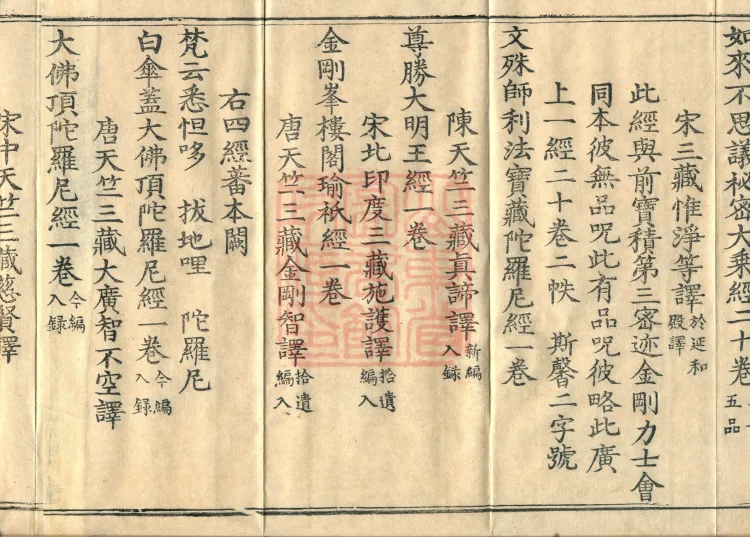 如來不思議秘密大乘經二十卷
五品
宋三藏惟淨等譯於延和殿譯
此經與前寶積第三密迹金剛力士會
同本彼無品呪此有品呪彼略此廣
上一經二十卷二帙 斯馨二字號
文殊師利法寶藏陀羅尼經一卷
陳天竺三藏真諦譯新編入錄
尊勝大明王經一卷
宋北印度三藏施護譯拾遺編入
金剛峯樓閣瑜祇經一卷
唐天竺三藏金剛智譯拾遺編入
右四經蕃本闕
梵云悉怛哆 拔地哩 陀羅尼
白傘蓋大佛頂陀羅尼經一卷今編入錄
唐天竺三藏大廣智不空譯
大佛頂陀羅尼經一卷今編入錄
宋中天竺三藏慈賢譯